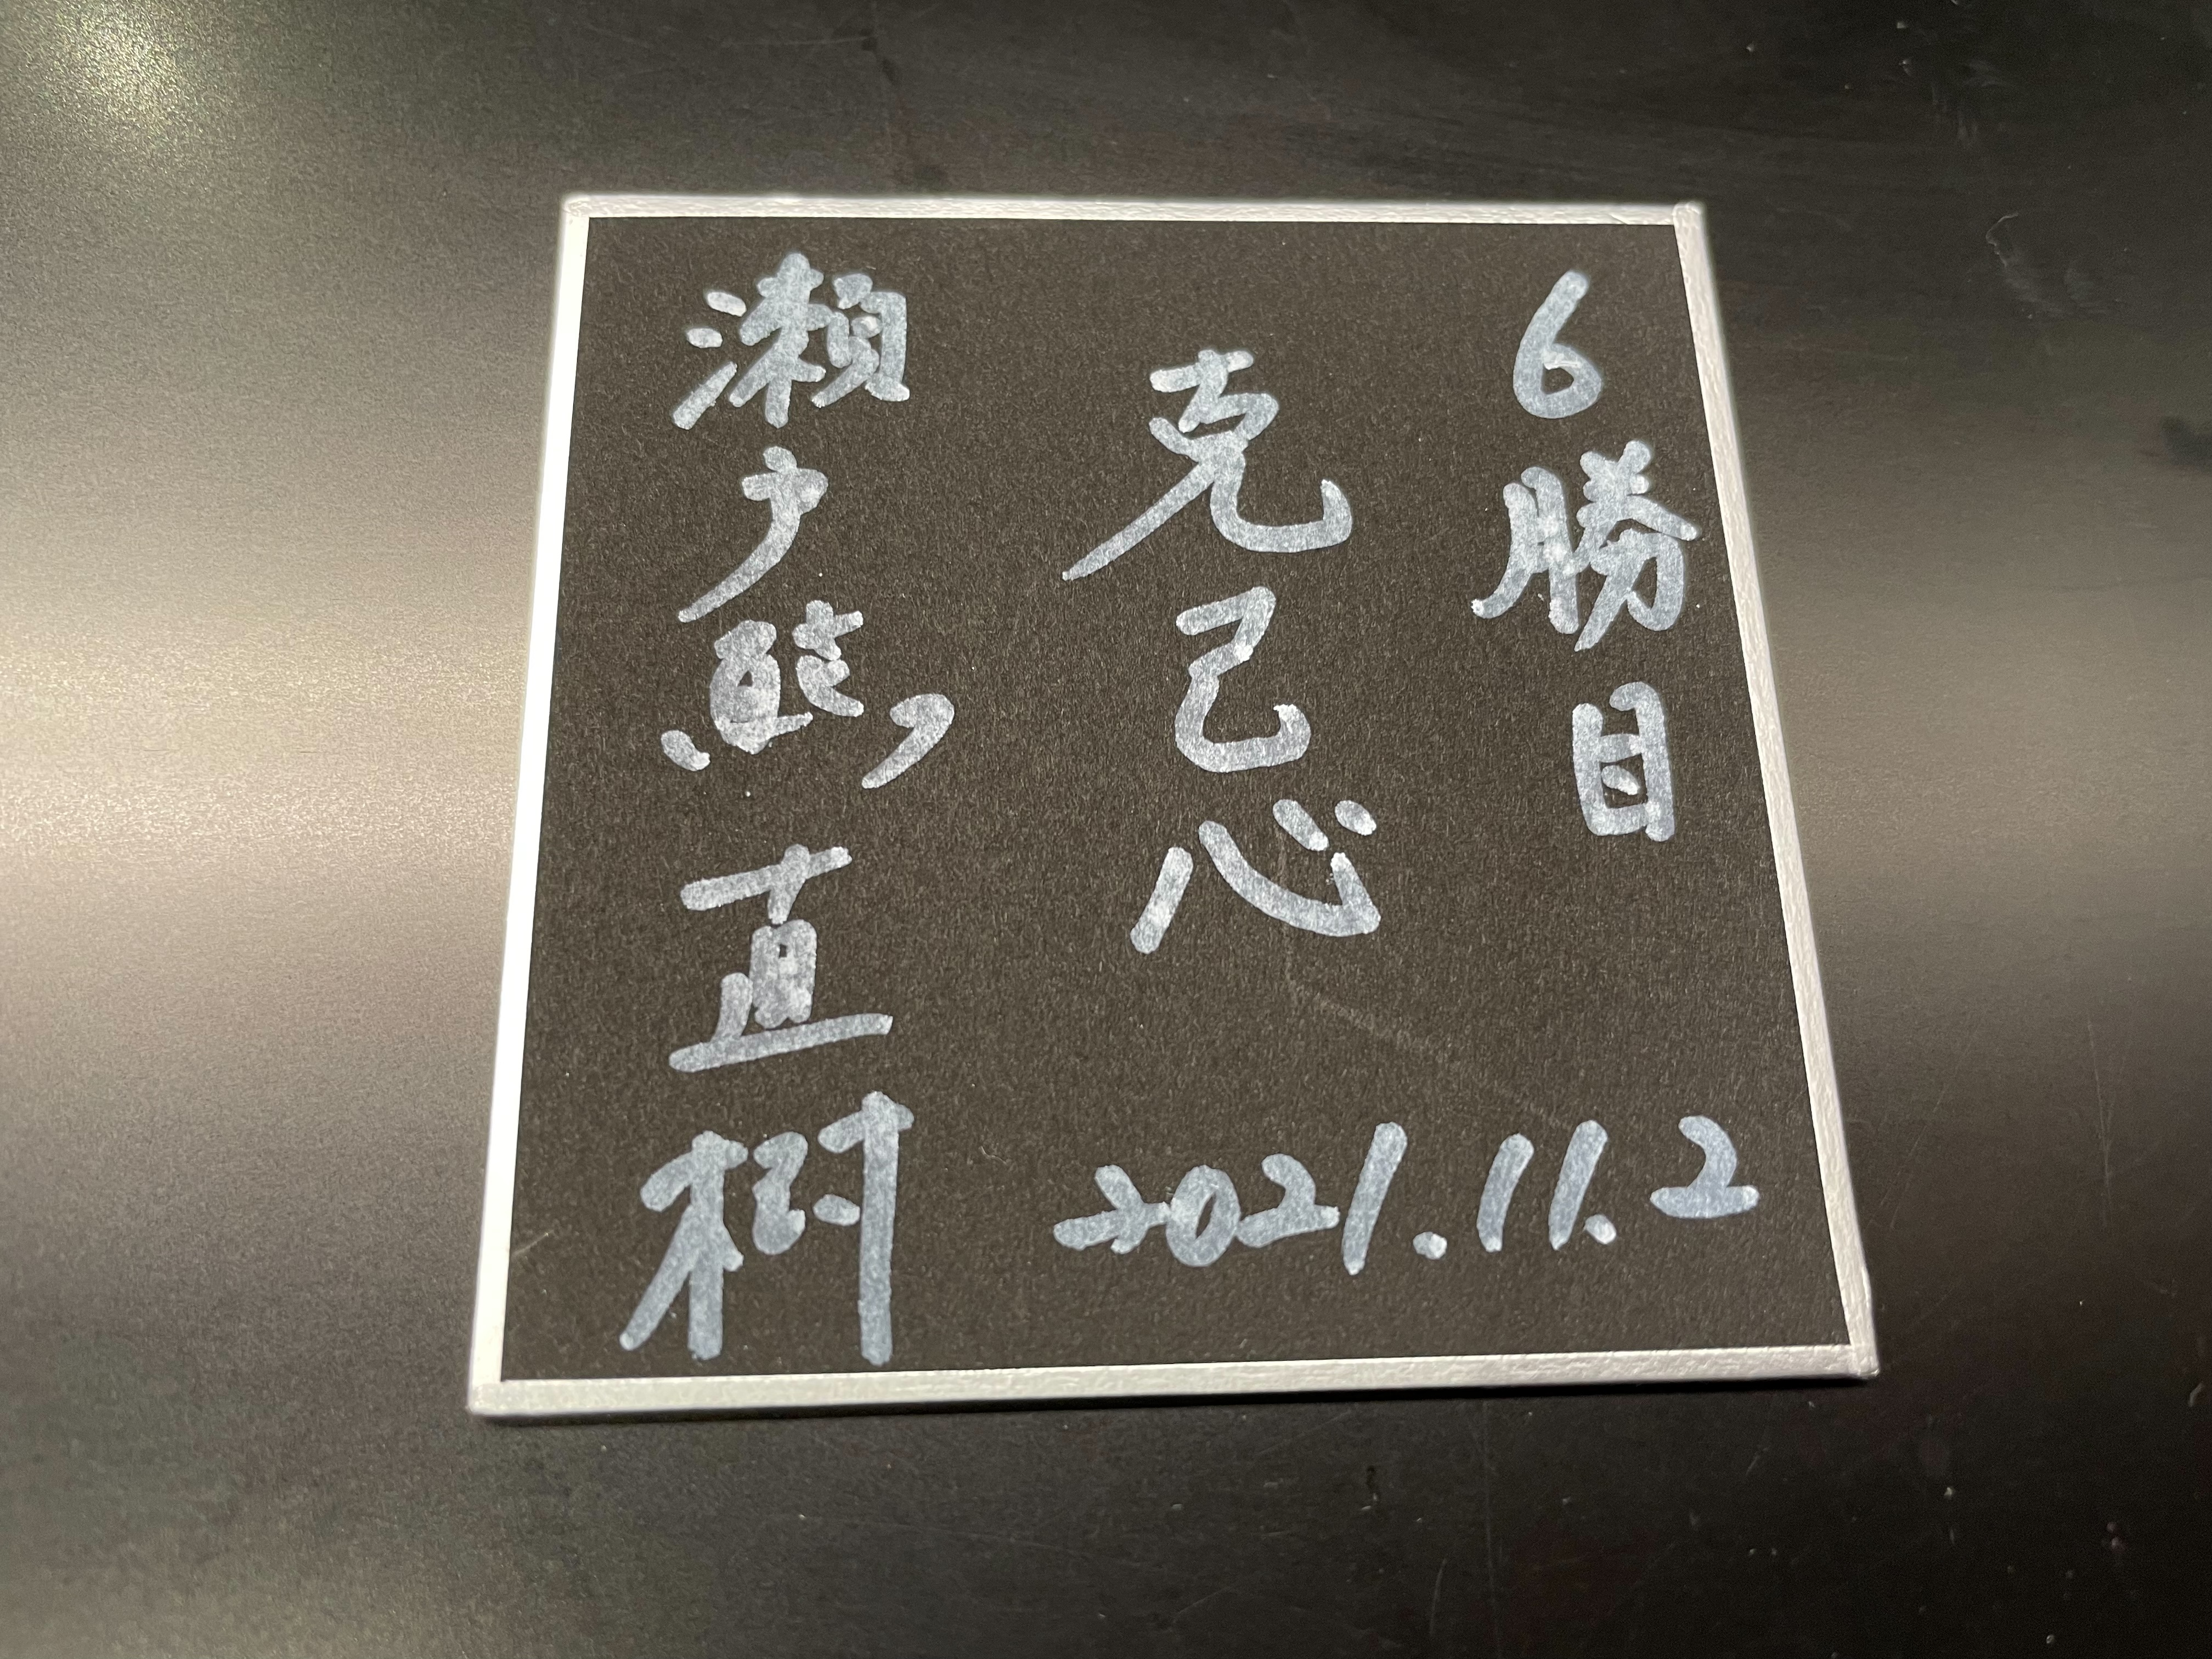 6勝目
克己心
瀬戸熊直樹
2021.11.2